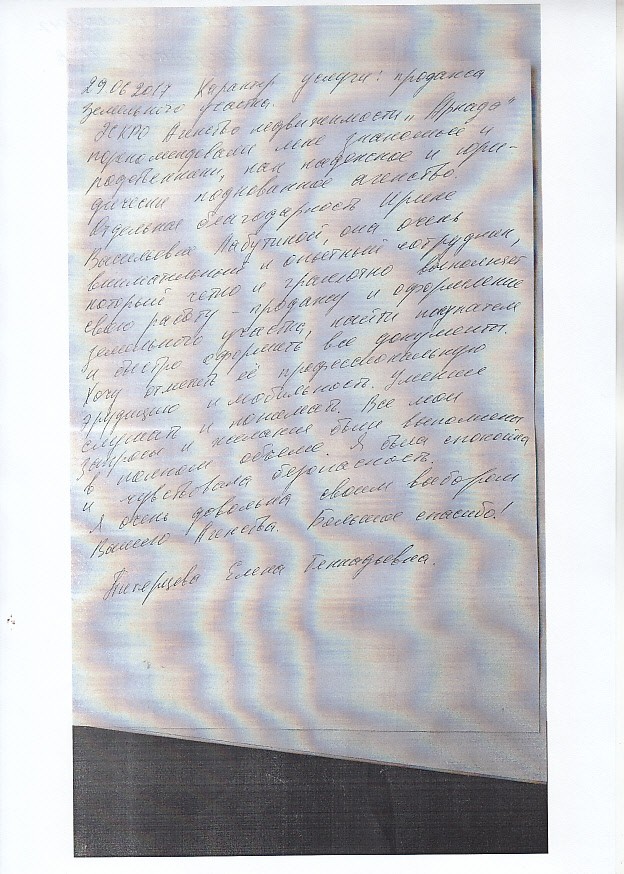 29.06.2017 Характер услуги: продажа
земельного участка.
Агенство недвижимости „Армада"
порекомендовали мне знакомые и
родственники, как надежное и юри-
дически подкованное агенство.
Отдельная благодарность Ирине
Васильевне Лабутиной, она очень
внимательный и опытный сотрудник,
который четко и грамотно выполняет
свою работу - продажу и оформление
земельного участка, найти покупателя
и быстро оформить все документы.
Хочу отметить её профессиональную
эрудицию и мобильность. Умение
слушать и понимать. Все мои
запросы и желания были выполнены
в полном объеме. Я была спокойна
и чувствовала безопасность.
Я очень довольна своим выбором
Вашего Агенства. Большое спасибо!
Елена Геннадьевна.